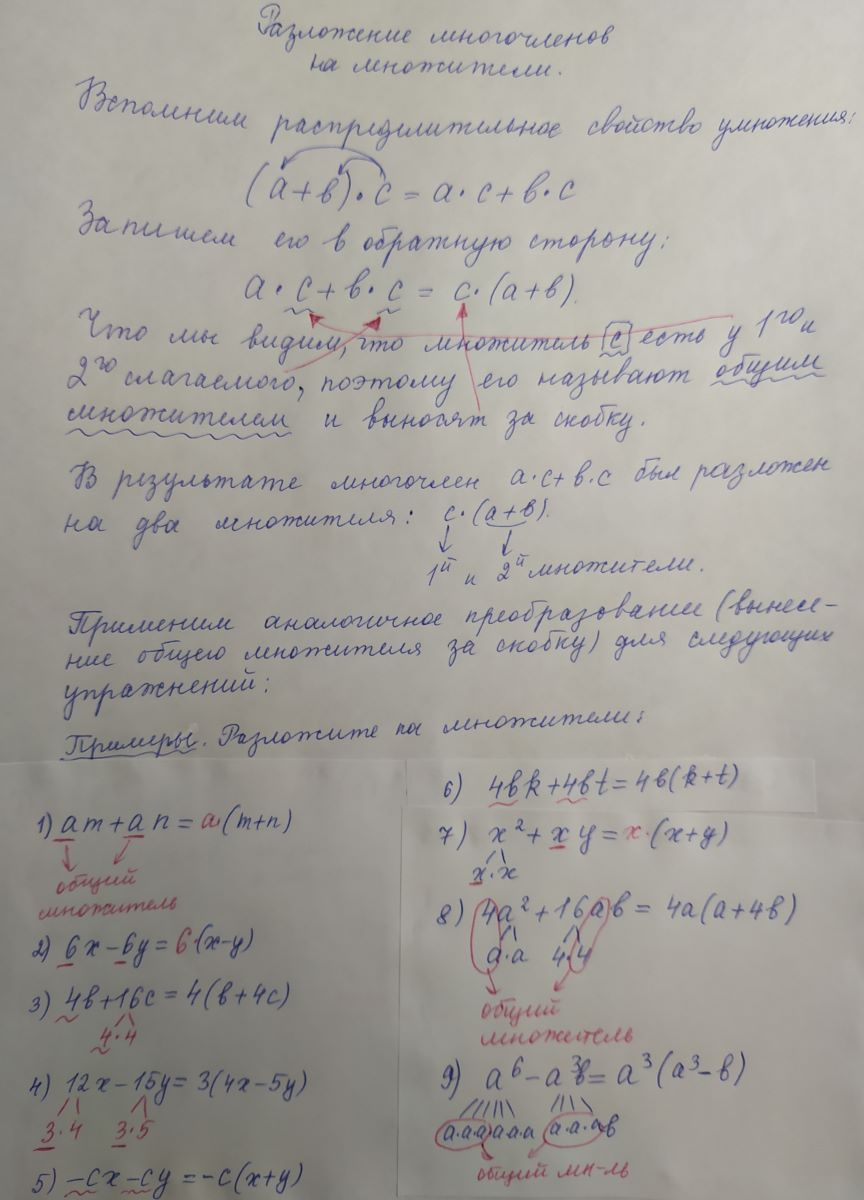 Разложение многочленов
на множители.
Вспомним распределительное свойство умножения:
(a+в)·c = a·c+в·c
Запишем его в обратную сторону:
a·c+в·c = c·(a+в).
Что мы видим, что множитель c есть у 1го и
2го слагаемого, поэтому его называют общим
множителем и выносят за скобку.
В результате многочлен a·c+в·c был разложен
на два множителя: c·(a+в).
1й и 2й множители.
Применим аналогичное преобразование (вынесе-
ние общего множителя за скобку) для следующих
упражнений:
Примеры. Разложите на множители:
1) am+an = a·(m+n)
общий
множитель
2) 6x-6y=6·(x-y)
3) 4в+16c=4(в+4c)
4·4
4) 12x-15y=3(4x-5y)
3·4 3·5
5) -cx-cy=-c(x+y)
6) 4вk+4вt=4в(k+t)
7) x²+xy=x·(x+y)
x·x
8) 4a²+16aв=4a(a+4в)
a·a 4·4
общий
множитель
9) a⁶-a³в=a³(a³-в)
a·a·a·a·a·a a·a·a·в
общий мн-ль